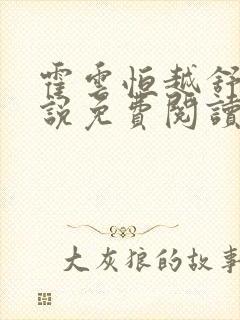 霍雲恒越舒
說免費閱讀
大灰狼的故事